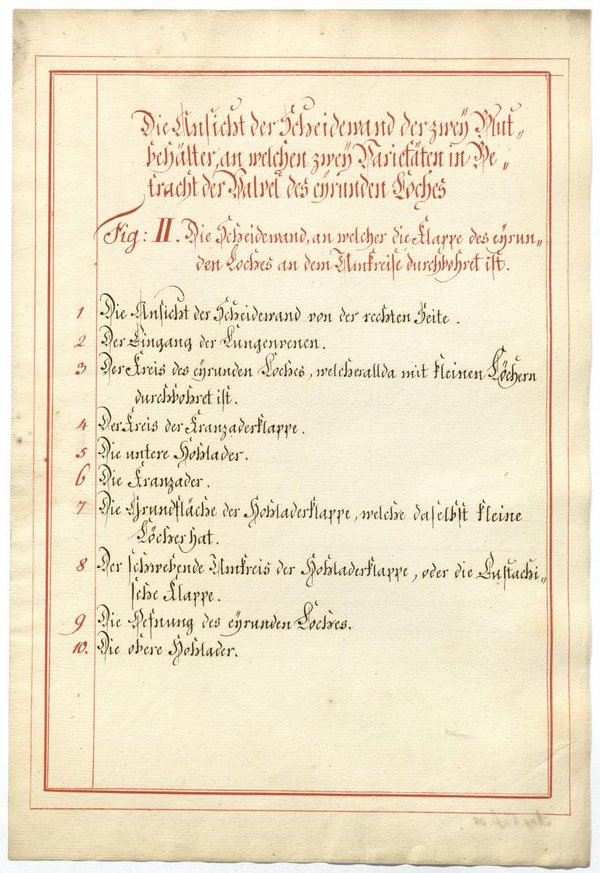 Die Ansicht der Scheidewand der zweÿ Blut„
behälter, an welchen zweÿ Varietäten in Be„
tracht der Valvel des eÿrunden Loches
Fig: II. Die Scheidewand, an welcher die Klappe des eÿrun„
den Loches an dem Umkreise durchbohret ist.
1 Die Ansicht der Scheidewand von der rechten Seite.
2 Der Eingang der Lungenvenen.
3 Der Kreis des eÿrunden Loches, welcher allda mit kleinen Löchern
durchbohret ist.
4 Der Kreis der Kranzaderklappe.
5 Die untere Hohlader.
6 Die Kranzader.
7 Die Grundfläche der Hohladerklappe, welche daselbst kleine
Löcher hat.
8 Der schwebende Umkreis der Hohladerklappe, oder die Eustachi„
sche Klappe.
9 Die Oefnung des eÿrunden Loches.
10. Die obere Hohlader.